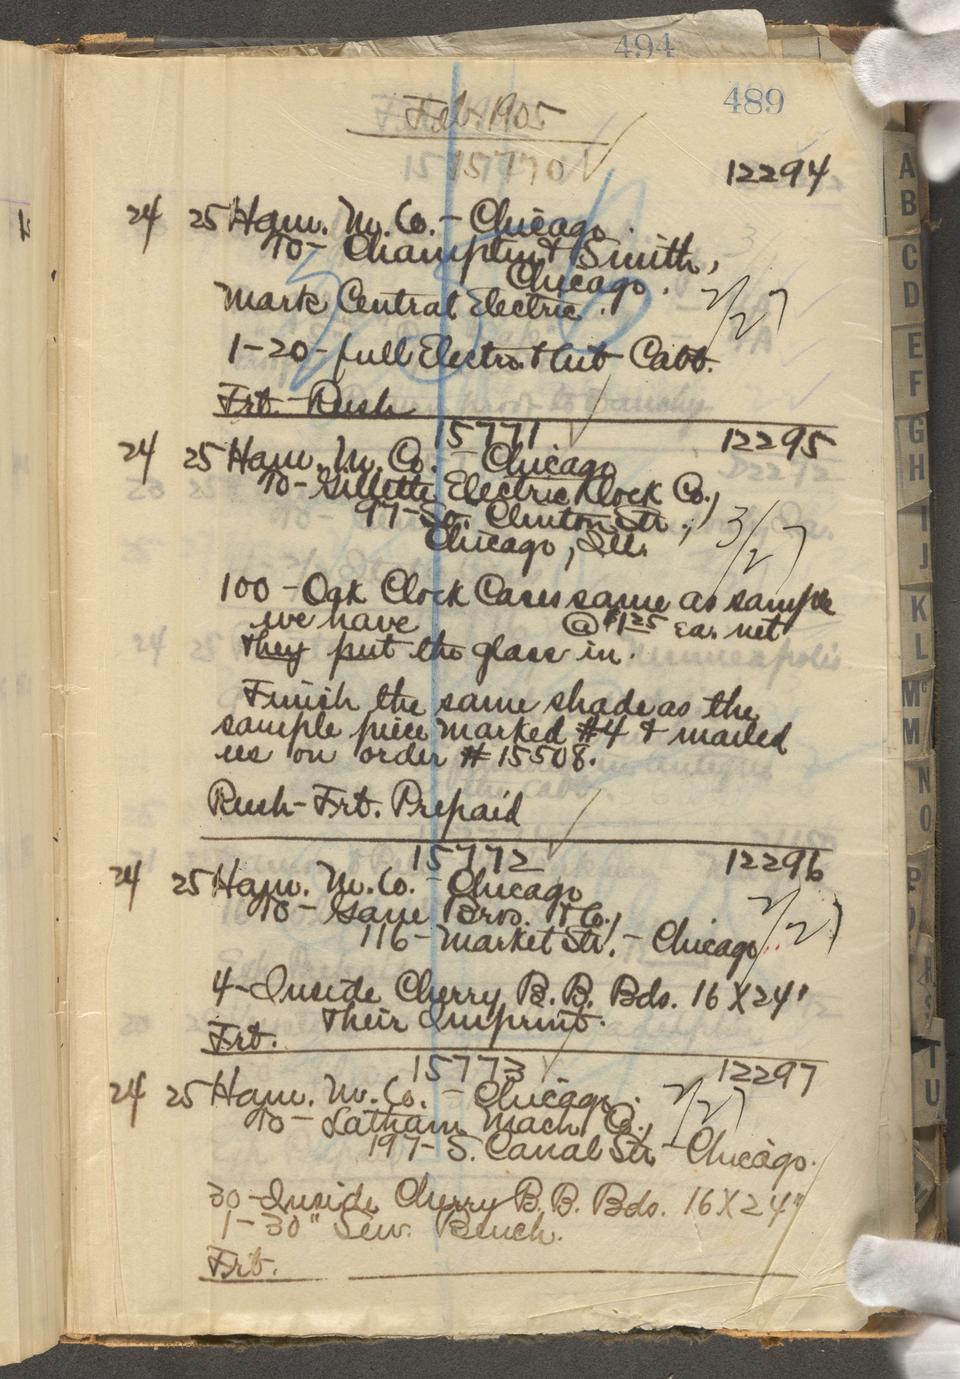 494
489
Feb. 1905
15770
12294
24 25 Ham. M. Co. - Chicago.
To - Champlin & Smith,
Chicago.
Mark Central Electric.
2/27
1-20- full Electro. & Cut Cabt.
Frt. - Rush
15771
12295
24 25 Ham. M. Co. - Chicago
To - Gillette Electric Klock Co.,
97 - So. Clinton Str.,
Chicago, Ill.
3/27
100 - Oak Clock Cases same as sample
we have @ $1.25 ea. net
They put the glass in.
Finish the same shade as the
sample piece marked #4 & mailed
us on order # 15508.
Rush - Frt. Prepaid
15772
12296
24 25 Ham. M. Co. - Chicago
To - Gane Bros. & Co.,
116 - Market Str. - Chicago
2/27
4 - Inside Cherry B. B. Bds. 16 X 24"
Their Imprint.
Frt.
15773
12297
24 25 Ham. M. Co. - Chicago.
To - Latham Mach. Co.,
197 - S. Canal Str - Chicago.
2/27
30 - Inside Cherry B. B. Bds. 16 X 24"
1 - 30" Sew. Bench.
Frt.
A
B
C
D
E
F
G
H
I
J
K
L
Mc
M
N
O
P
T
U